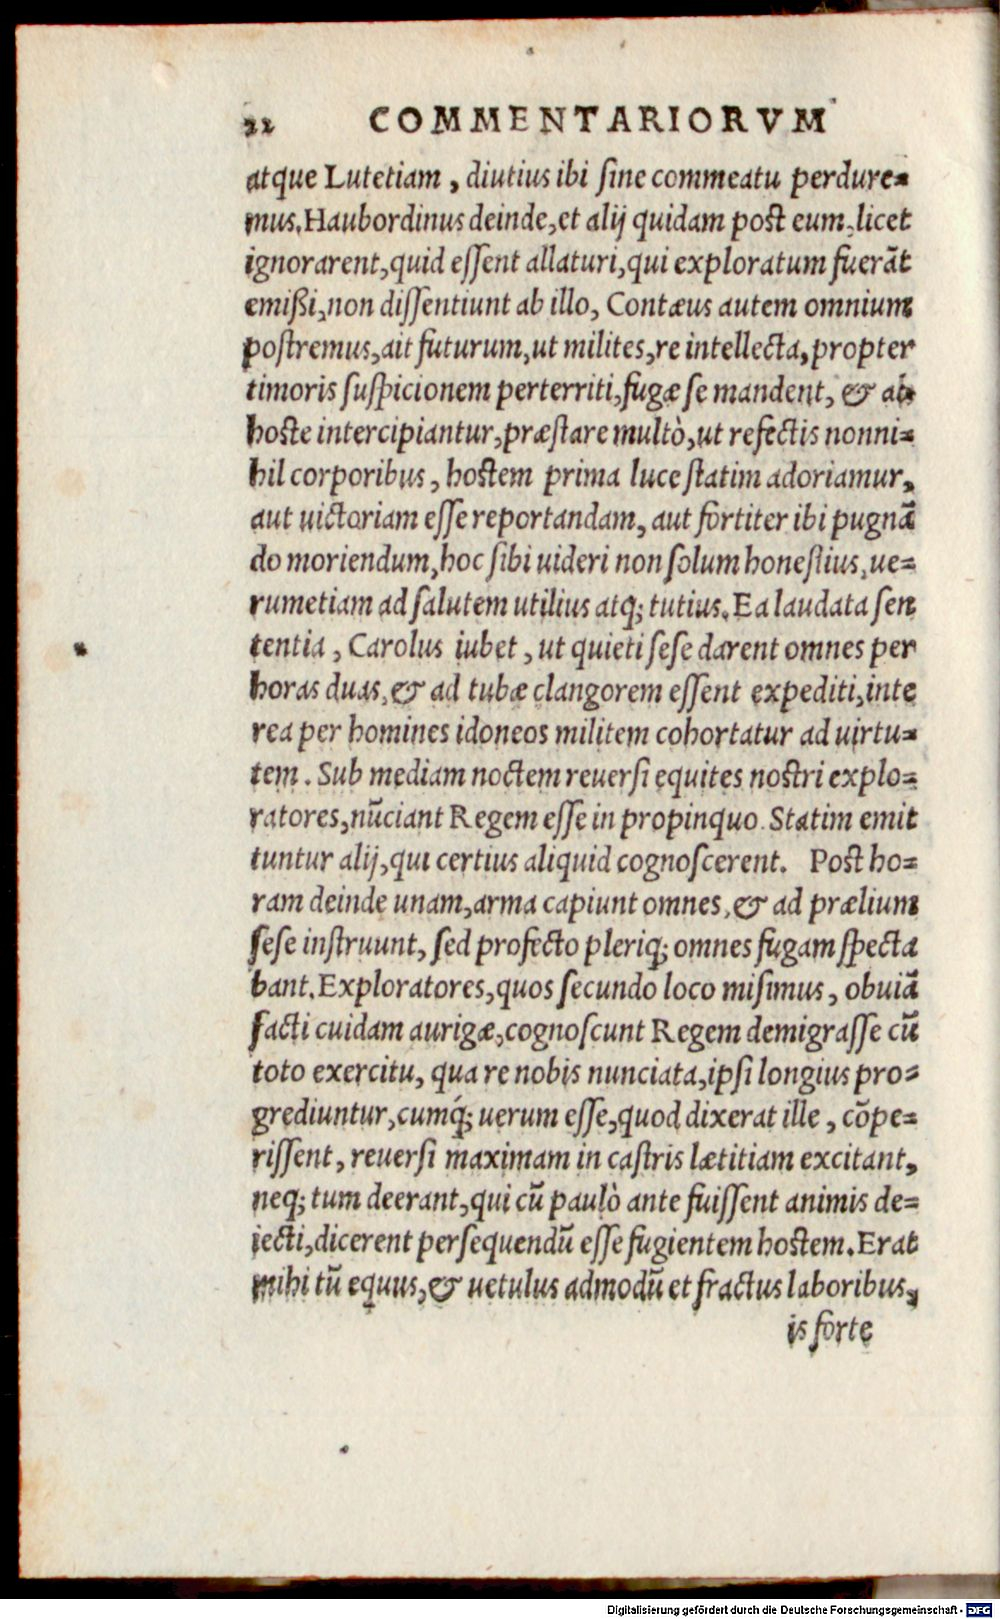 22 COMMENTARIORVM
atque Lutetiam, diutius ibi ſine commeatu perdure=
mus. Haubordinus deinde, et alij quidam post eum, licet
ignorarent, quid eſſent allaturi, qui exploratum fuerãt
emißi, non diſſentiunt ab illo, Contæus autem omnium
poſtremus, ait futurum, ut milites, re intellecta, propter
timoris ſuſpicionem perterriti, fugæ ſe mandent, & ab
hoſte intercipiantur, præſtare multò, ut refectis nonni=
hil corporibus, hoſtem prima luce ſtatim adoriamur,
aut uictoriam eſſe reportandam, aut fortiter ibi pugnã
do moriendum, hoc ſibi uideri non ſolum honeſtius, ue=
rumetiam ad ſalutem utilius atq; tutius. Ea laudata ſen
tentia, Carolus iubet, ut quieti ſeſe darent omnes per
horas duas, & ad tubæ clangorem eſſent expediti, inte
rea per homines idoneos militem cohortatur ad uirtu=
tem. Sub mediam noctem reuerſi equites noſtri explo=
ratores, nũciant Regem eſſe in propinquo. Statim emit
tuntur alij, qui certius aliquid cognoſcerent. Poſt ho=
ram deinde unam, arma capiunt omnes, & ad prælium
ſeſe inſtruunt, ſed profecto pleriq; omnes fugam ſpecta
bant. Exploratores, quos ſecundo loco miſimus, obuiã
facti cuidam aurigæ, cognoſcunt Regem demigraſſe cũ
toto exercitu, qua re nobis nunciata, ipſi longius pro=
grediuntur, cumq́; uerum eſſe, quod dixerat ille, cõpe=
riſſent, reuerſi maximam in caſtris lætitiam excitant,
neq; tum deerant, qui cũ paulò ante fuiſſent animis de=
iecti, dicerent perſequendũ eſſe fugientem hoſtem. Erat
mihi tũ equus, & uetulus admodũ et fractus laboribus,
is forte
Digitalisierung gefördert durch die Deutsche Forschungsgemeinschaft - DFG